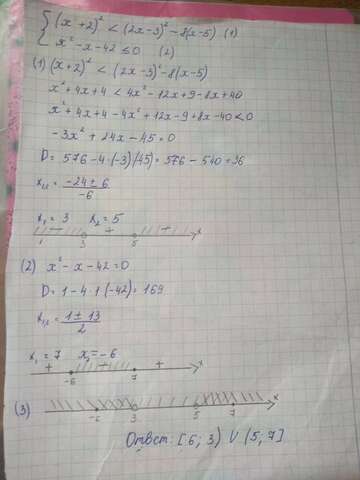 { (x+2)² < (2x-3)² - 8(x-5) (1)
x² - x - 42 ≤ 0 (2)
(1) (x+2)² < (2x-3)² - 8(x-5)
x² + 4x + 4 < 4x² - 12x + 9 - 8x + 40
x² + 4x + 4 - 4x² + 12x - 9 + 8x - 40 < 0
-3x² + 24x - 45 = 0
D = 576 - 4·(-3)(45) = 576 - 540 = 36
x₁,₂ = (-24 ± 6)/(-6)
x₁ = 3 x₂ = 5
- + - x
1 3 5
(2) x² - x - 42 = 0
D = 1 - 4·1(-42) = 169
x₁,₂ = (1 ± 13)/2
x₁ = 7 x₂ = -6
+ - + x
-6 7
(3) x
-6 3 5 7
Ответ: [6; 3) ∪ (5; 7]